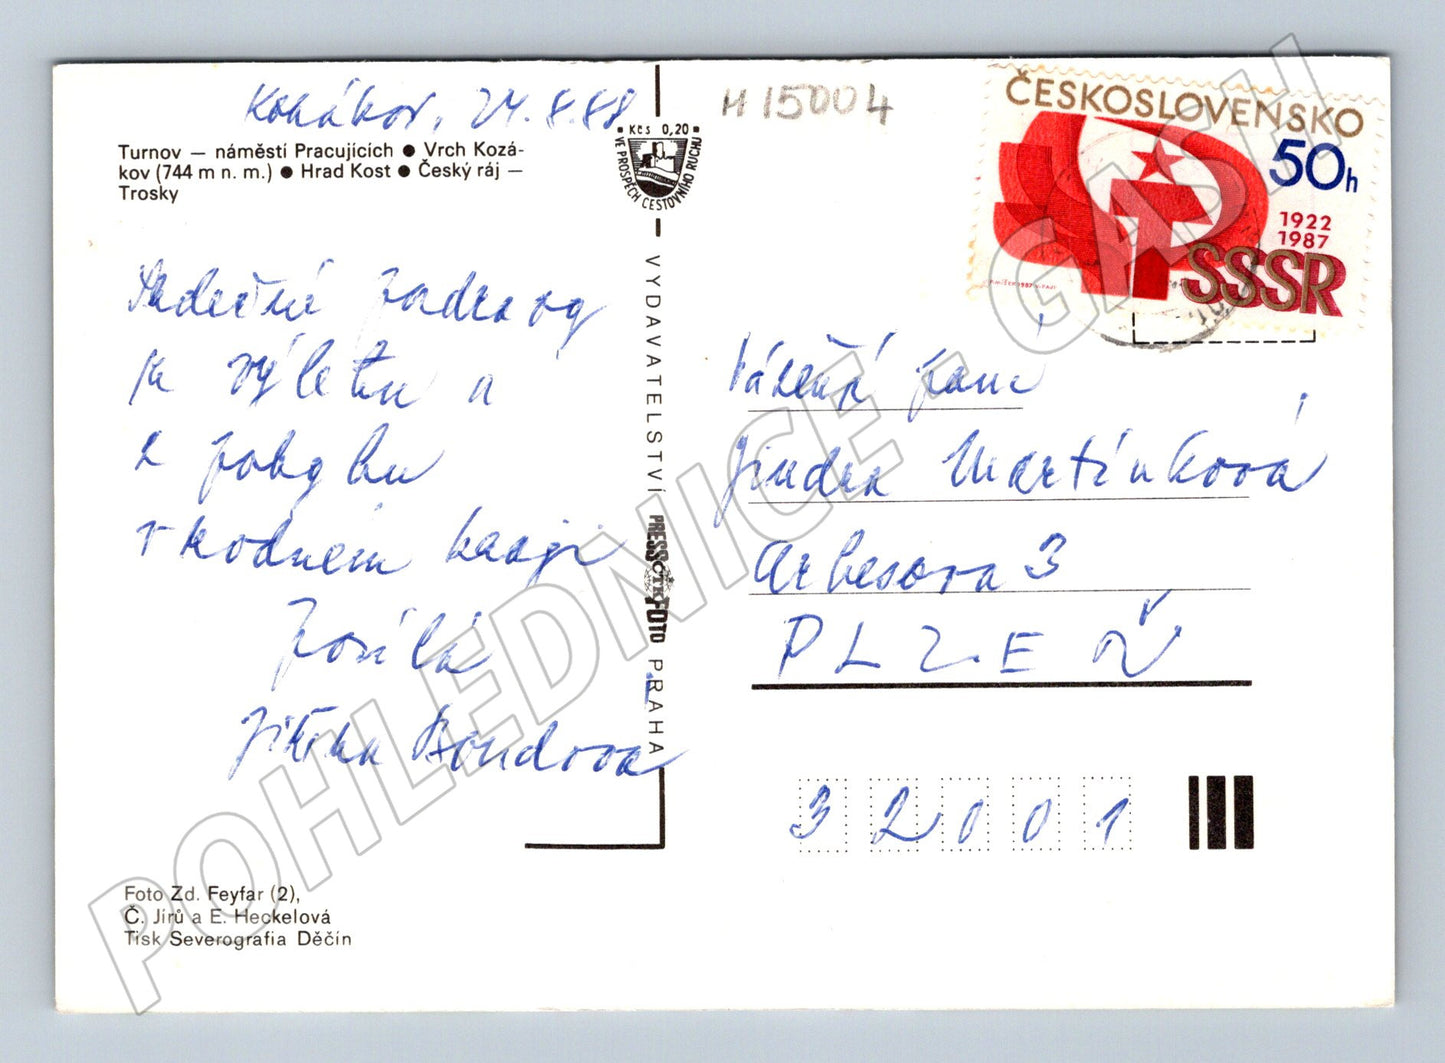 Kohákov, 24.8.88
H 15004
Turnov — náměstí Pracujících ● Vrch Kozá-
kov (744 m n. m.) ● Hrad Kost ● Český ráj —
Trosky
Kčs 0,20
VE PROSPĚCH CESTOVNÍHO RUCHU
ČESKOSLOVENSKO
50h
1922
1987
SSSR
Srdečné pozdravy
z výletu a
z pobytu
v rodném kraji
posílá
Jitka Boudova
VYDAVATELSTVÍ PRESSFOTO PRAHA
ČTK
Vážená paní
Jindra Martínková
Arbesova 3
PLZEŇ
32001
Foto Zd. Feyfar (2),
Č. Jírů a E. Heckelová
Tisk Severografia Děčín
POHLEDNICE - GASH